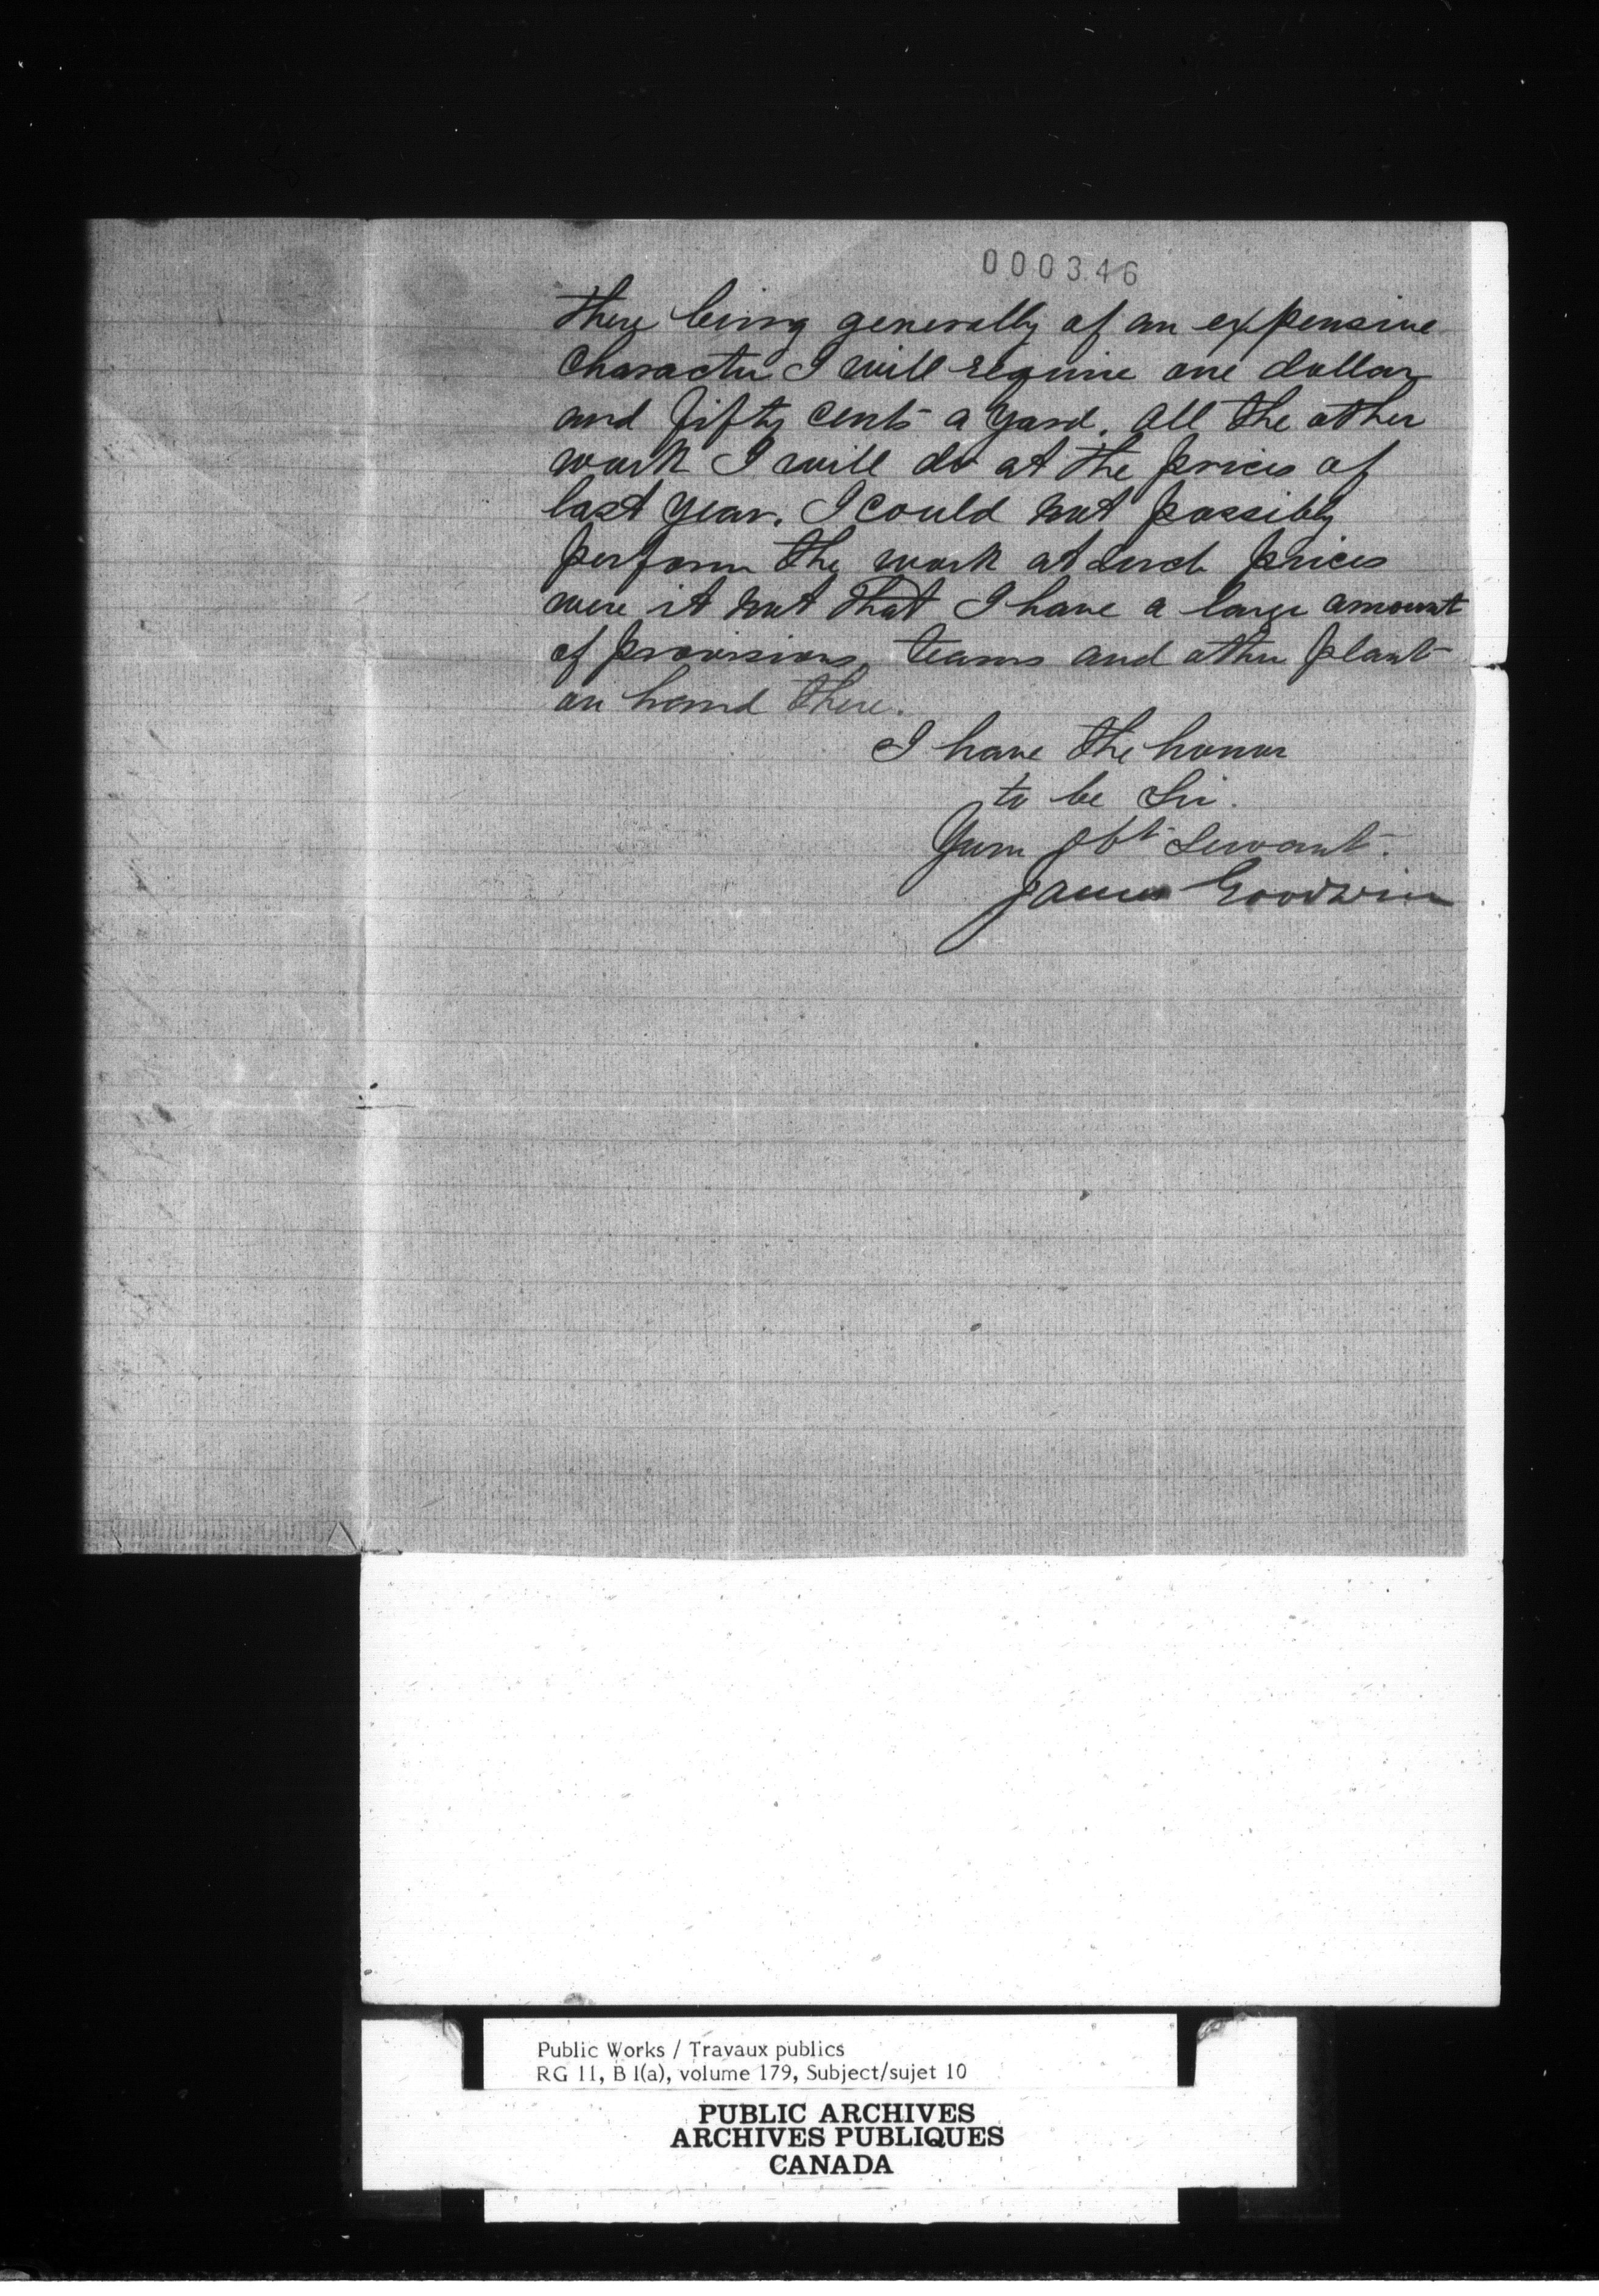 000346
there being generally of an expensive
character I will require one dollar
and fifty cents a yard. All the other
work I will do at the prices of
last year. I could not possibly
perform the work at such prices
were it not that I have a large amount
of provisions, teams and other plant
on hand there.
I have the honor
to be Sir.
Your Obt Servant.
James Goodwin
Public Works / Travaux publics
RG 11, B 1(a), volume 179, Subject/sujet 10
PUBLIC ARCHIVES
ARCHIVES PUBLIQUES
CANADA